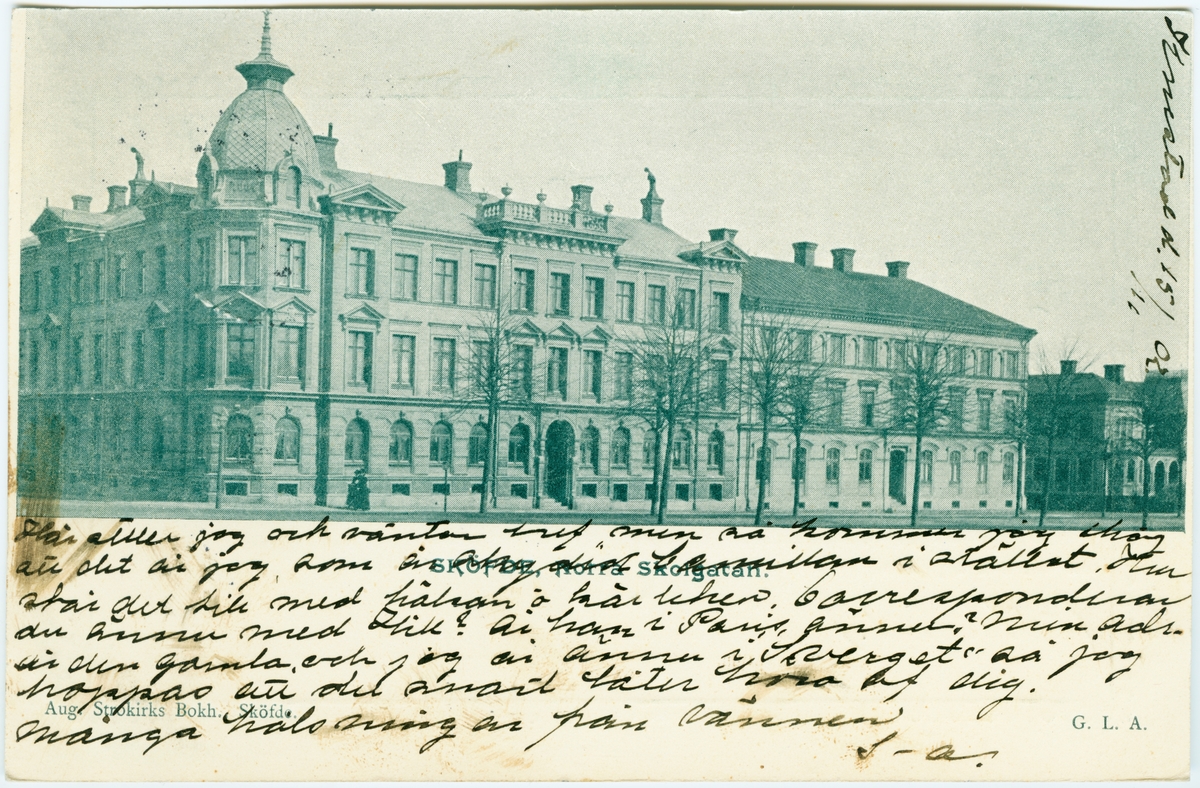 d. 15/11 02
Här sitter jag och väntar bref, men så kommer jag ihog
att det är jag som är skyldig i stället. Hur
SKÖFDE, Norra Skolgatan.
står det till med hälsan o kärleken. Corresponderar
du ännu med ? är han i Paris ännu? Min adr.
är den gamla, och jag är ännu i "Sverget" så jag
hoppas att du snart låter höra af dig.
Aug. Strökirks Bokh., Sköfde.
G. L. A.
många hälsningar från vännen
S-a.